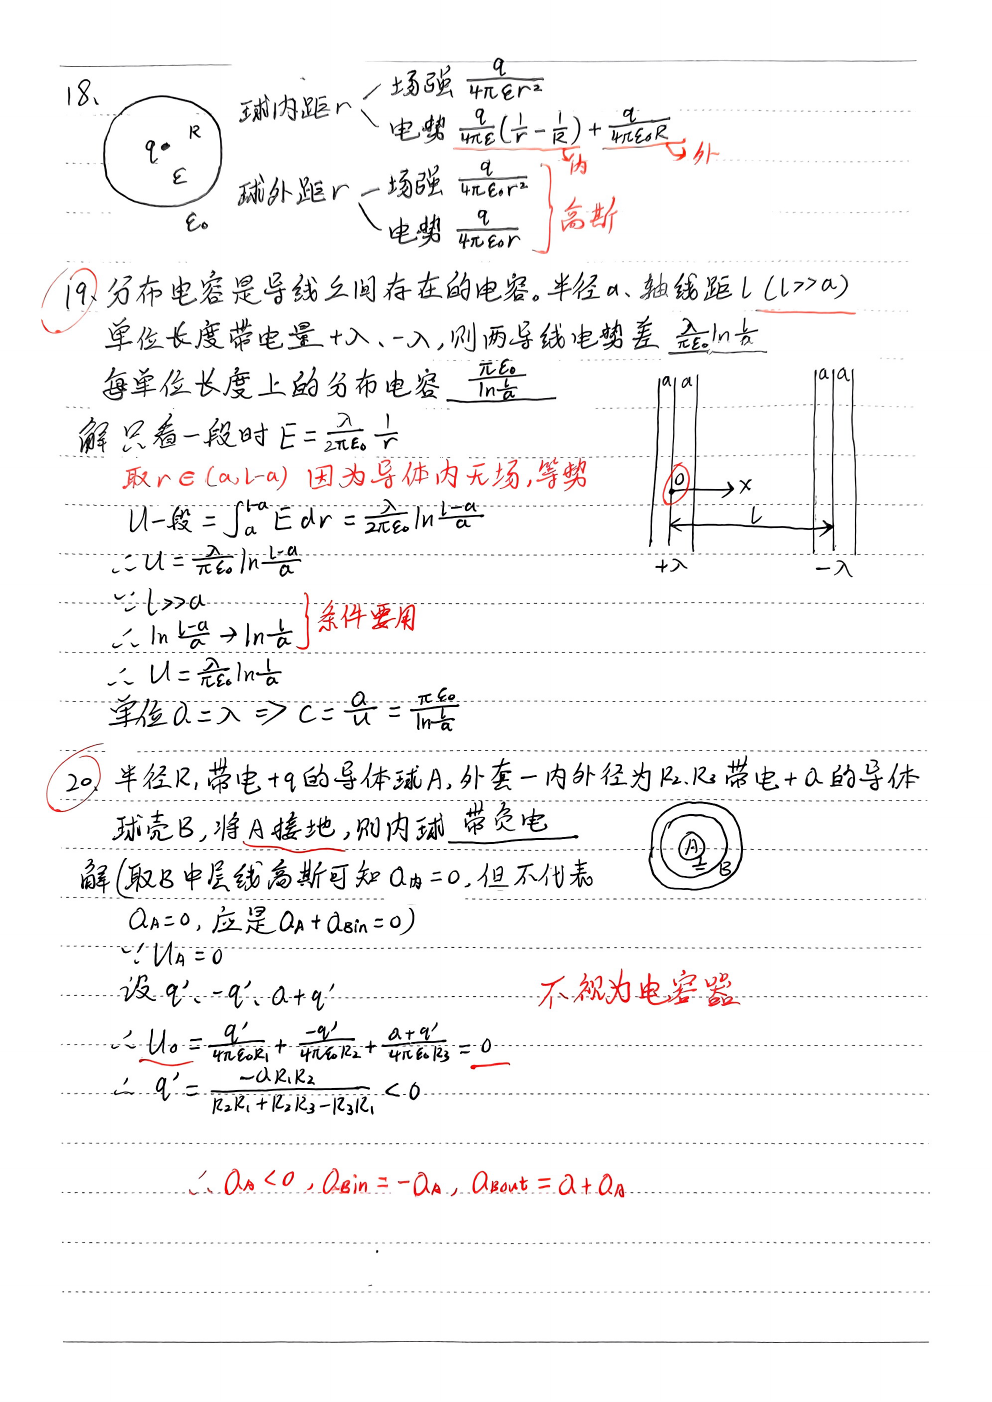 18、
球内距r 场强 q/4πεr²
电势 q/4πε(1/r - 1/R) + q/4πε₀R
内 外
q R
ε
ε₀
球外距r 场强 q/4πε₀r²
电势 q/4πε₀r
高斯
19、分布电容是导线之间存在的电容。半径a、轴线距l (l>>a)
单位长度带电量+λ、-λ, 则两导线电势差 λ/πε₀ ln l/a
每单位长度上的分布电容 πε₀/ln l/a
a a a a
解 只看一段时 E = λ/2πε₀ 1/r
取r∈(a, l-a) 因为导体内无场,等势
0 x
l
+λ -λ
U一段 = ∫ₐ^(l-a) E dr = λ/2πε₀ ln l-a/a
∴ U = λ/πε₀ ln l-a/a
∵ l>>a
∴ ln l-a/a → ln l/a
条件要用
∴ U = λ/πε₀ ln l/a
单位Q = λ => C = Q/U = πε₀/ln l/a
20、半径R₁带电+q的导体球A, 外套一内外径为R₂.R₃带电+Q的导体
球壳B, 将A接地, 则内球 带负电
A B
解(取B中层线高斯可知Q内=0, 但不代表
QA=0, 应是QA+QBin=0)
∵ UA=0
设 q′、-q′、Q+q′
不视为电容器
∴ U₀ = q′/4πε₀R₁ + -q′/4πε₀R₂ + Q+q′/4πε₀R₃ = 0
∴ q′ = -QR₁R₂/R₂R₁+R₂R₃-R₃R₁ < 0
∴ QA<0, QBin=-QA, QBout=Q+QA